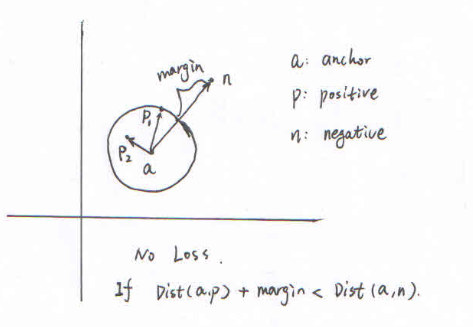 margin
n
P₁
P₂
a
a: anchor
p: positive
n: negative
No Loss.
If Dist(a.p) + margin < Dist(a,n).